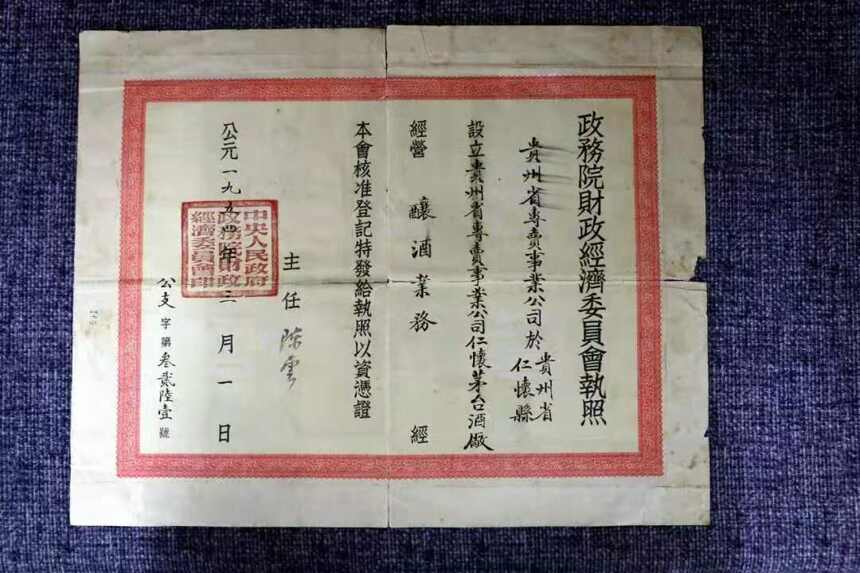 政務院財政經濟委員會執照
貴州省專賣事業公司於貴州省仁懷縣
設立貴州省專賣事業公司仁懷茅台酒廠
經營 釀酒業務 經
本會核准登記特發給執照以資憑證
主任 陈雲
公元一九五四年三月一日
中央人民政府
政務院財政
經濟委員會印
公支字第叁貳陸壹號